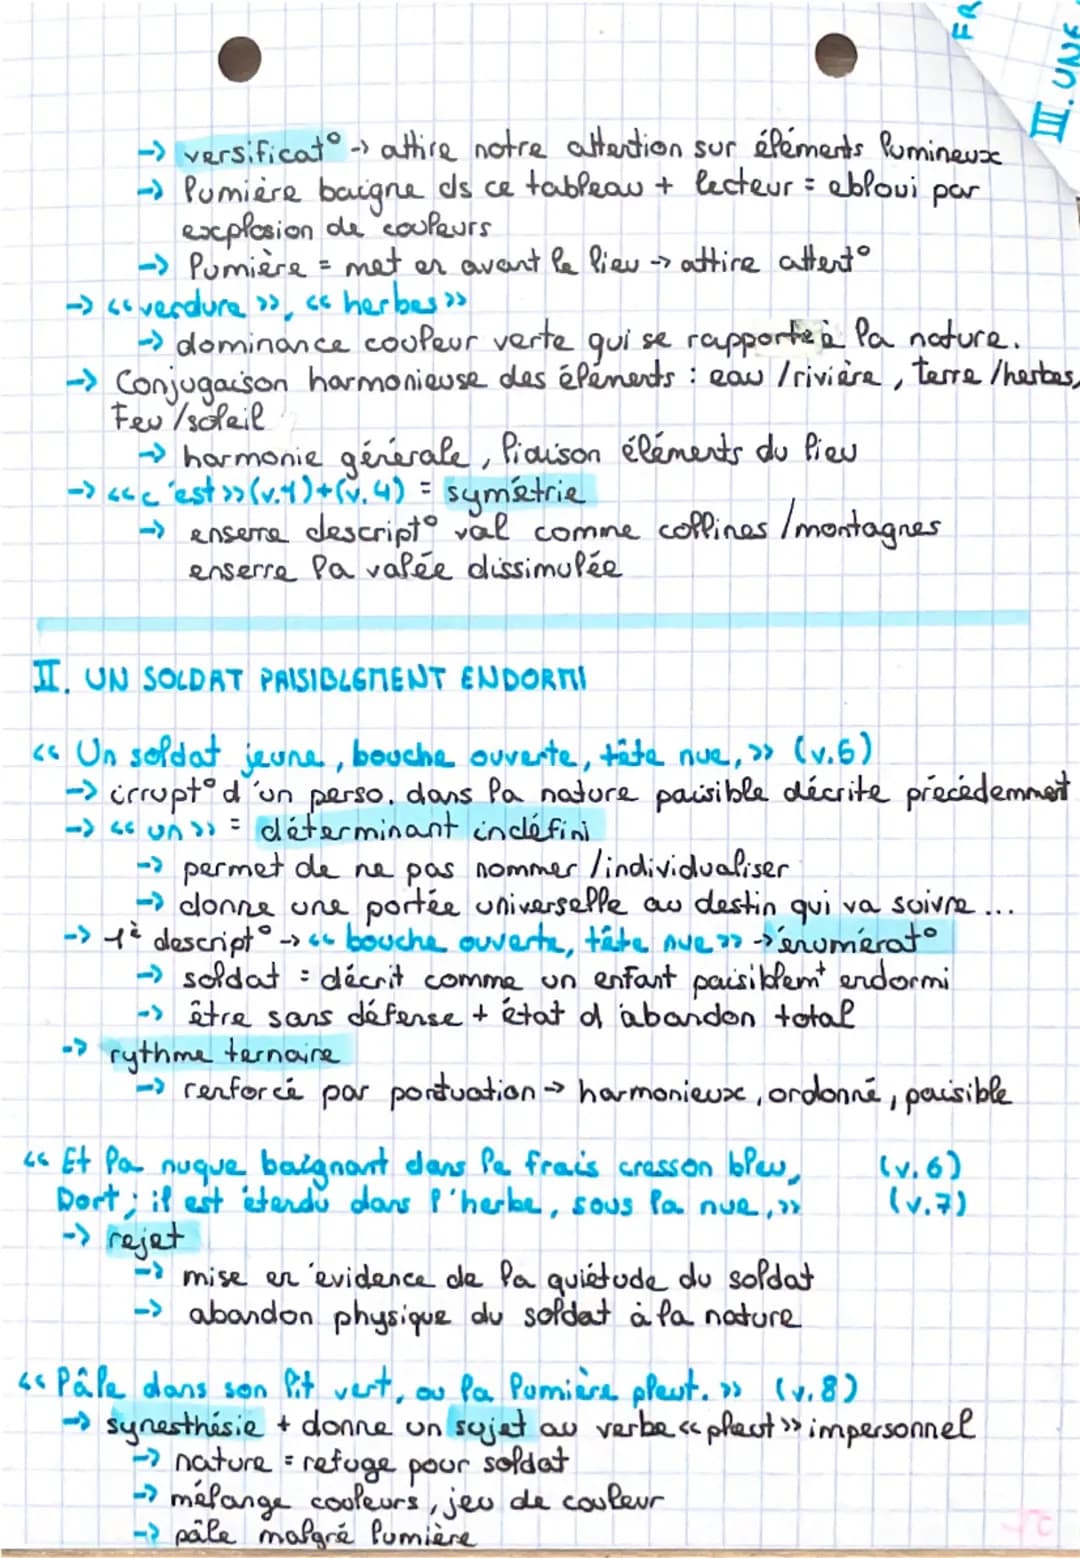 FR
III. UNE
→ versificat° → attire notre attention sur éléments lumineux
→ lumière baigne ds ce tableau + lecteur = ebloui par
explosion de couleurs
→ lumière = met en avant le lieu → attire attent°
→ << verdure >>, << herbes >>
→ dominance couleur verte qui se rapporte à la nature.
→ Conjugaison harmonieuse des éléments : eau / rivière, terre /herbes,
Feu /soleil
→ harmonie générale, liaison éléments du lieu
→ <<c'est>> (v.1)+(v.4) = symétrie
→ enserre descript° val comme collines /montagnes
enserre la valée dissimulée
II. UN SOLDAT PAISIBLEMENT ENDORMI
<< Un soldat jeune, bouche ouverte, tête nue, >> (v.5)
→ irrupt° d'un perso. dans la nature paisible décrite précédemment
→ << un >> = déterminant indéfini
→ permet de ne pas nommer /individualiser
→ donne une portée universelle au destin qui va suivre ...
→ 1è descript° → << bouche ouverte, tête nue >> → énumérat°
→ soldat = décrit comme un enfant paisiblemt endormi
→ être sans défense + état d'abandon total
→ rythme ternaire
→ renforcé par pontuation → harmonieux, ordonné, paisible
<< Et la nuque baignant dans le frais cresson bleu, (v.6)
Dort ; il est étendu dans l'herbe, sous la nue, >> (v.7)
→ rejet
→ mise en évidence de la quiétude du soldat
→ abandon physique du soldat à la nature
<< Pâle dans son lit vert, ou la lumière pleut. >> (v.8)
→ synesthésie + donne un sujet au verbe << pleut >> impersonnel
→ nature = refuge pour soldat
→ mélange couleurs, jeu de couleur
→ pâle malgré lumière